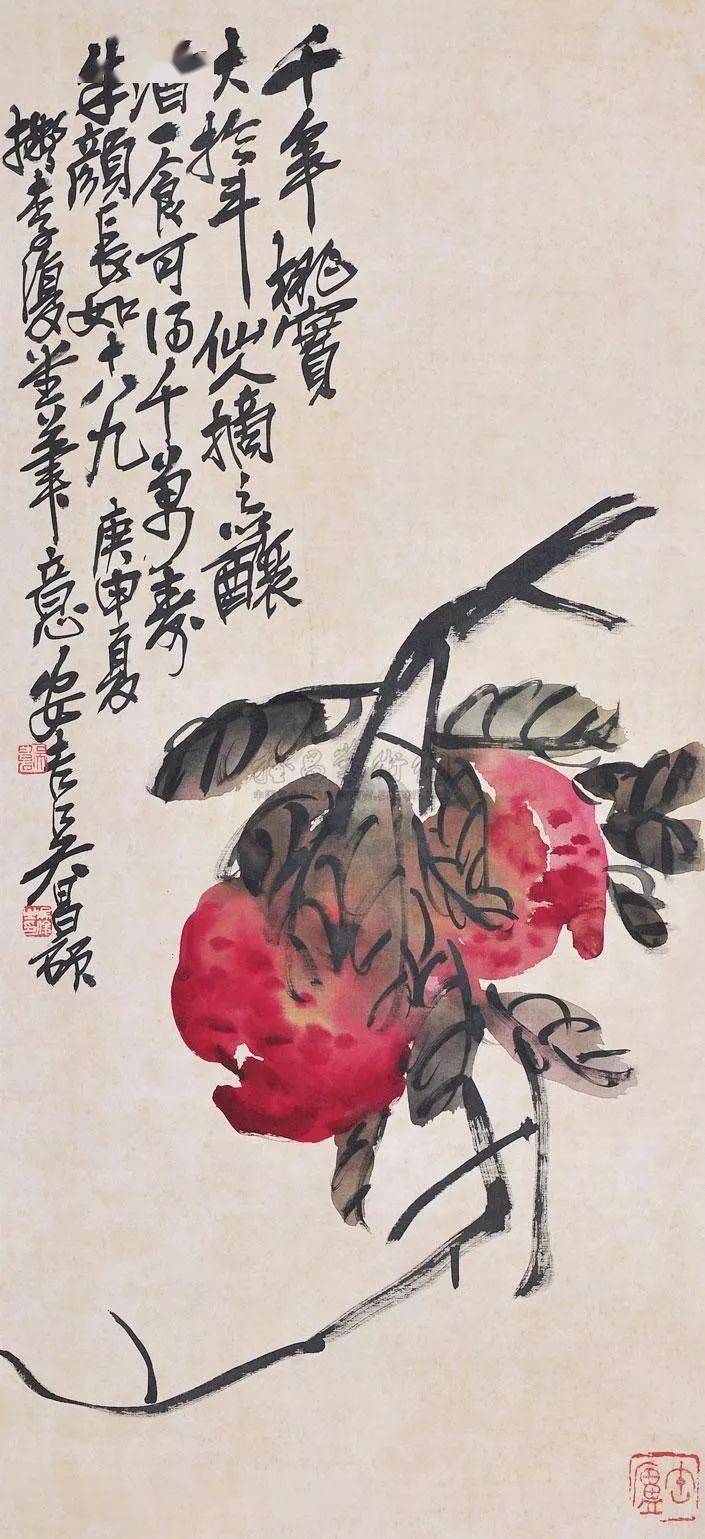 千年桃實
大於斗仙人摘之釀
酒一食可得千萬壽
朱顏長如十八九庚申夏
擬李復堂筆意安吉吳昌碩
缶廬